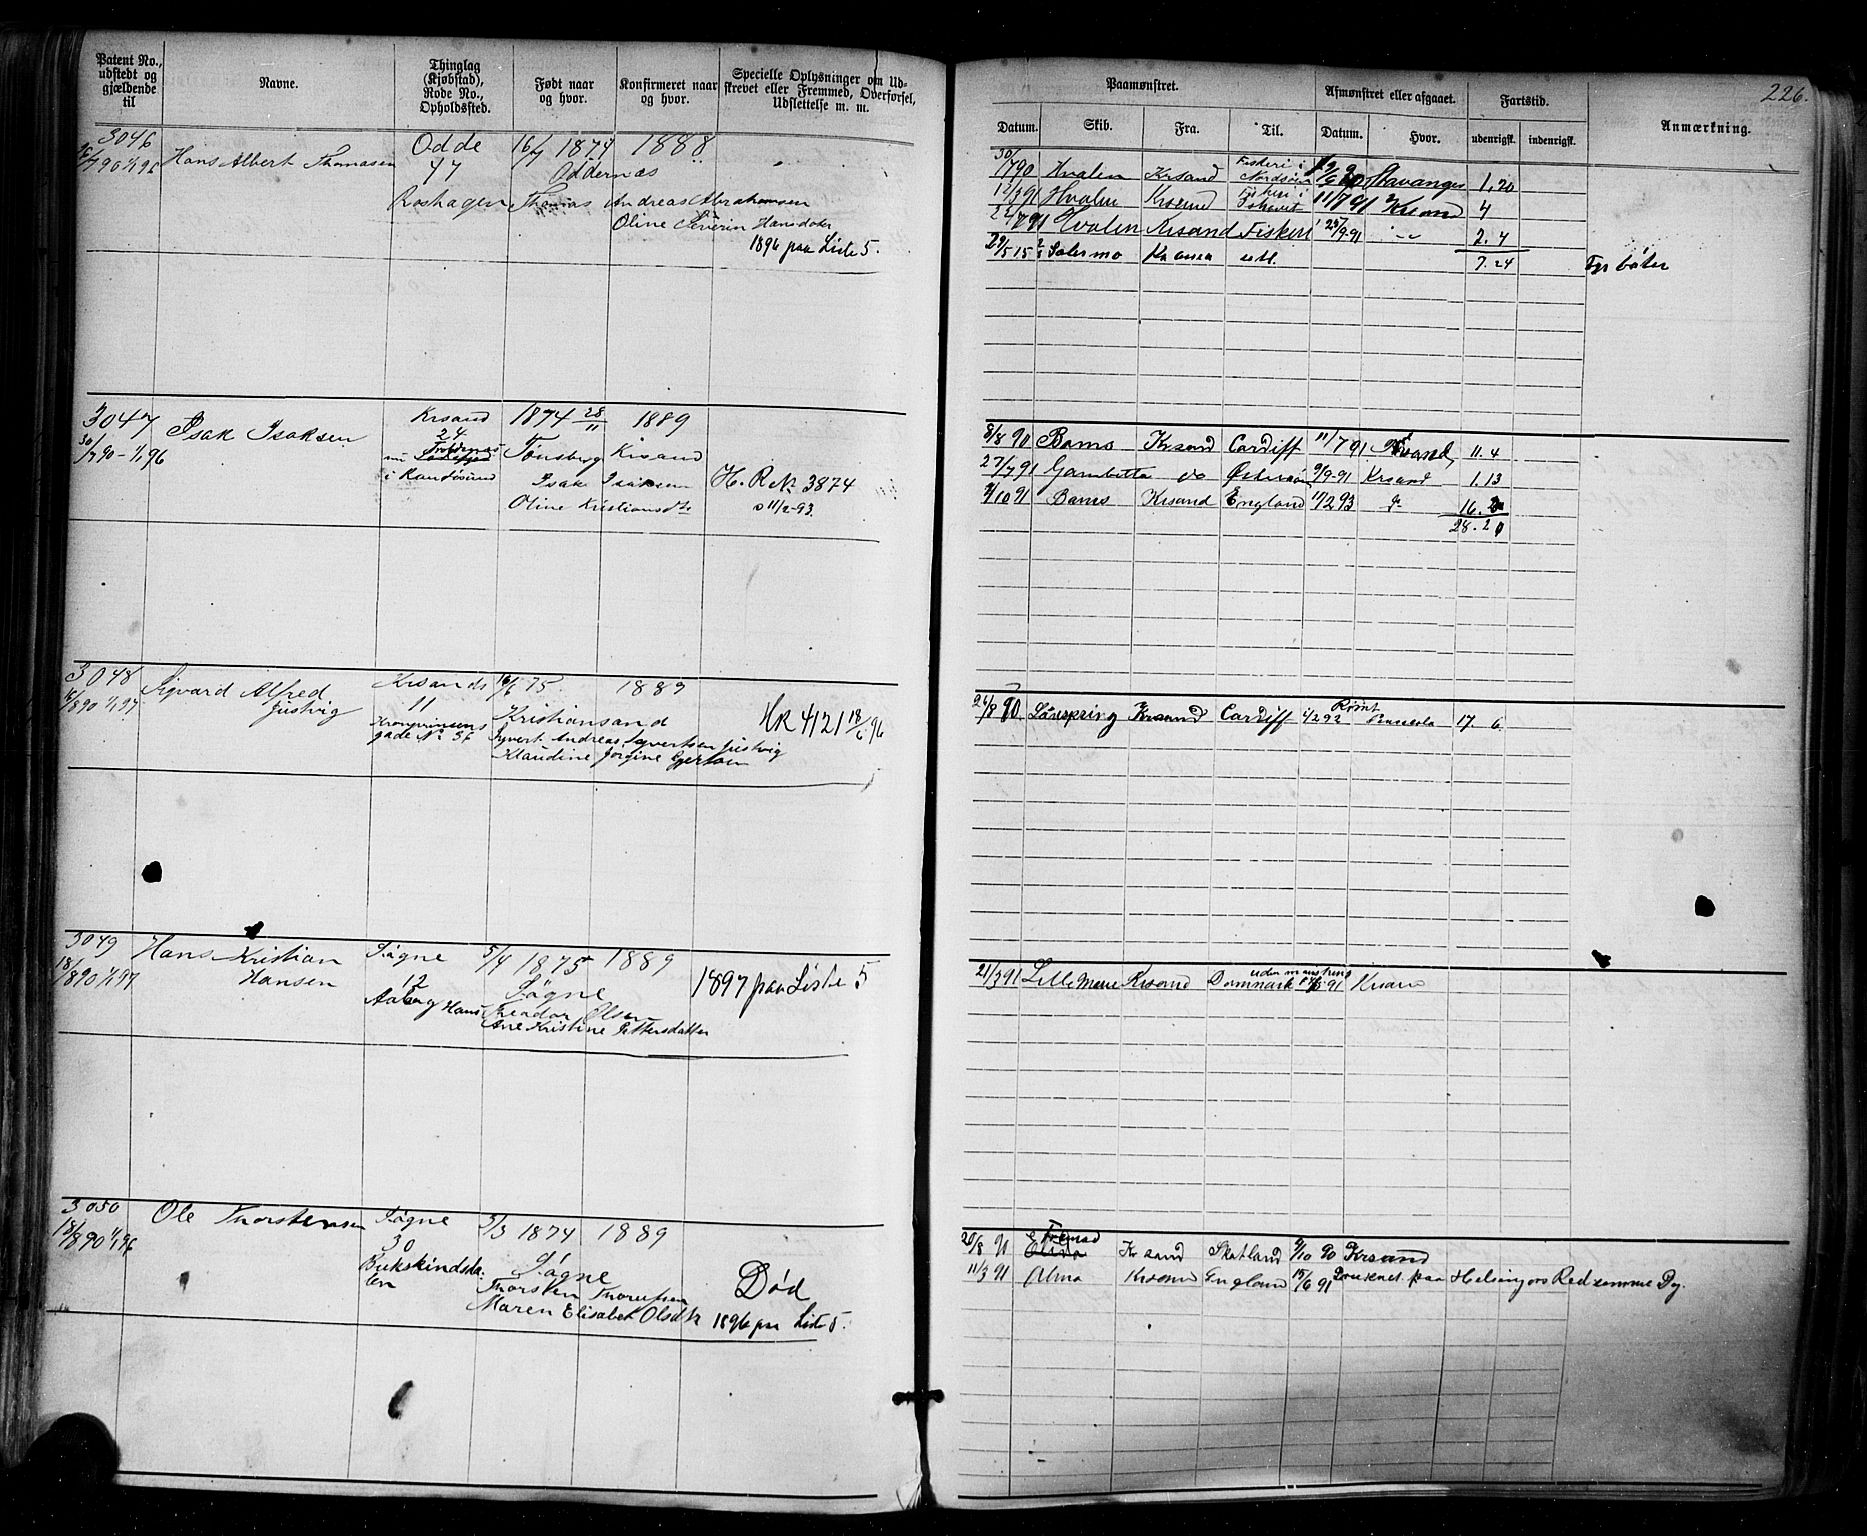 Patent No., udstedt og gjældende til
Navne.
Thinglag (Kjøbstad), Rode No., Opholdssted.
Født naar og hvor.
Konfirmeret naar og hvor.
Specielle Oplysninger om Udskrevet eller Fremmed, Overførsel, Udslettelse m. m.
Paamønstret.
Afmønstret eller afgaaet.
Fartstid.
Anmærkning.
226.
Datum.
Skib.
Fra.
Til.
Datum.
Hvor.
udenrigsk.
indenrigsk.
3046
16/7 90 1/1 96
Hans Albert Thomasen
Odde
47
Roshagen
16/7 1874
Oddernæs
1888
Thomas Andreas Abrahamsen
Oline Severin Hansdater
1896 paa Liste 5.
30/7 90 Hvalen Krsand Fiskeri i Nordsøen Stavanger 1.20
12/3 91 Hvalen Krsand Fiskeri i 11/7 91 Krsand 4
22/7 91 Hvalen Krsand Fiskeri 24/9 91 2.4
29/5 15 Salermo 7.24
3047
30/7 90 - 1/1 96
Isak Isaksen
Krsand
24
i Randösund
1874 28/11
Tønsberg
1889
Krsand
Isak Isaksen
Oline Kristiansdtr
H. R. No 3874
11/2-93
8/8 90 Bams Krsand Cardiff 11/7 91 Krsand 11.4
27/7 91 Gambetta do 9/9-91 Krsand 1.13
2/10 91 Bams Krsand England 11/2 93
28.20
3048
16/8 90 1/1 97
Sigvard Alfred
Justvig
Krsands
11
Kronprinsens
gade No 56
16/6 75.
Kristiansand
1889
Syvert Andreas Syvertsen Justvig
Klaudine Jörgine Gjertsen
HR 4121 18/6 96
24/8 90 Krsand Cardiff 1/2 92 Rømt 17. 6.
3049
18/8 90 1/1 97
Hans Kristian
Hansen
Søgne
12
5/4 1875
Søgne
1889
Hans Theador Olsen
Ane Kristine Pettersdatter
1897 paa Liste 5
21/3 91 Lille Marie Krsand Danmark uden mønstring 91 Krsand
3050
18/8 90 1/1 96
Ole Thorstensen
Søgne
30
3/3 1874
Søgne
1889
Thorsten
Maren Elisabet Olsdtr
Død
1896 paa Liste 5.
20/8 90 Krsand Skotland 9/10 90 Krsand
11/3 91 Alma Krsand England 15/6 91 Druknet paa Helsingørs Red samme Dg.